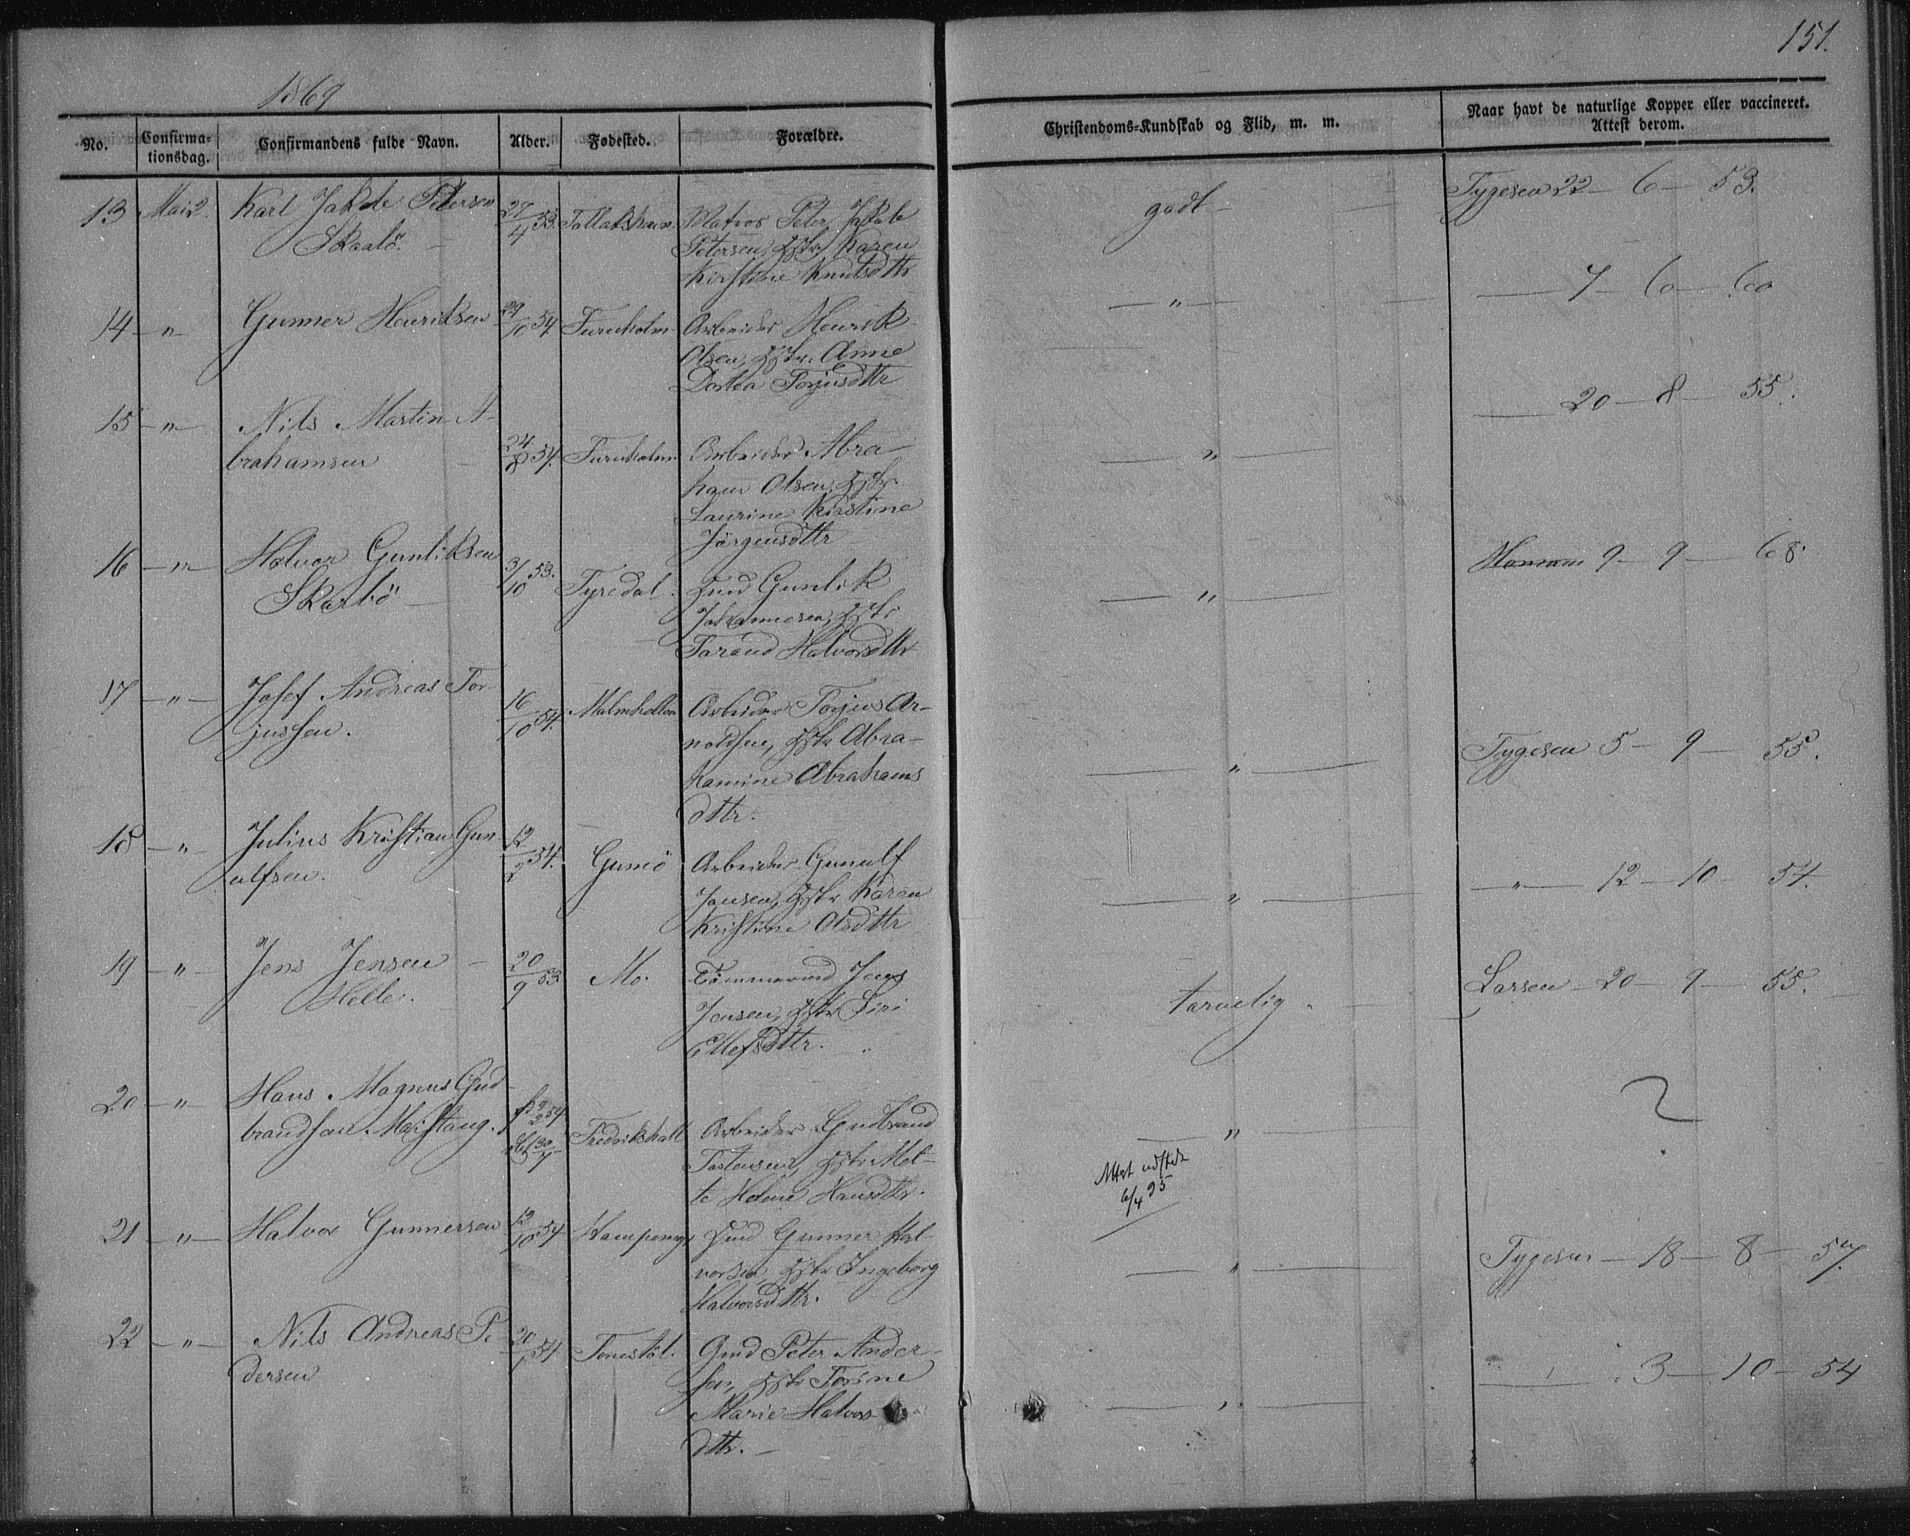 151.
1869
No.
Confirma-
tionsdag.
Confirmandens fulde Navn.
Alder.
Fødested.
Forældre.
Christendoms-Kundskab og Flid, m. m.
Naar havt de naturlige Kopper eller vaccineret.
Attest derom.
13 Mai 2. Karl Jakob Petersen 27/4 53. Matros Peter Jakob
Skaalö. Petersen, Hstr Karen
Kirstine Knutsdttr
godt
Tygesen 22 — 6 — 53.
14 — " — Gunner Henriksen 29/10 54. Furuholm Arbeider Henrik
Olsen, Hstr. Anne
Dortea Torjusdttr
— " —
— 7 — 6 — 60
15 — " — Nils Martin A-
brahamsen 24/8 54. Furuholm Arbeider Abra-
ham Olsen, Hstr.
Laurine Kirstine
Jörgensdttr
— " —
— 20 — 8 — 55.
16 — " — Halvor Gunliksen 3/10 53. Tyredal. Gunlik
Skarbö Johannesen, Hstr
Halvorsdttr
— " —
9 — 9 — 68.
17 — " — Josef Andreas Tor- 16/10 54. Arbeider Torjus Ar-
jussen. noldsen, Hstr Abra-
hamine Abrahams
dttr.
— " —
Tygesen 5 — 9 — 55.
18 — " — Julius Kristian Gun- 12/2 54. Gumö Arbeider Gunulf
ulfsen. Jansen, Hstr Karen
Kristine Olsdttr
— " —
— " — 12 — 10 — 54.
19 — " — Jens Jensen 20/9 53 Mo. Tömmermd Jens
Helle. Jensen, Hstr Siri
Ellefsdttr.
tarvelig.
Larsen 20 — 9 — 55.
20 — " — Hans Magnus Gud-
brandsen f. 9/2 54 Fredrikshald Arbeider Gudbrand
Hstr Mal-
te Helene Hansdttr.
— " —
Attest udstedt
6/4 95
?
21 — " — Halvor Gunnersen 12/10 54 Gunner Hal-
vorsen, Hstr Ingeborg
Halvorsdttr.
— " —
Tygesen — 18 — 8 — 57.
22 — " — Nils Andreas Pe- 20/1 54 Gmd Peter Ander-
dersen sen, Hstr Torine
Marie Halvors
dttr. —
— " —
— " — 3 — 10 — 54